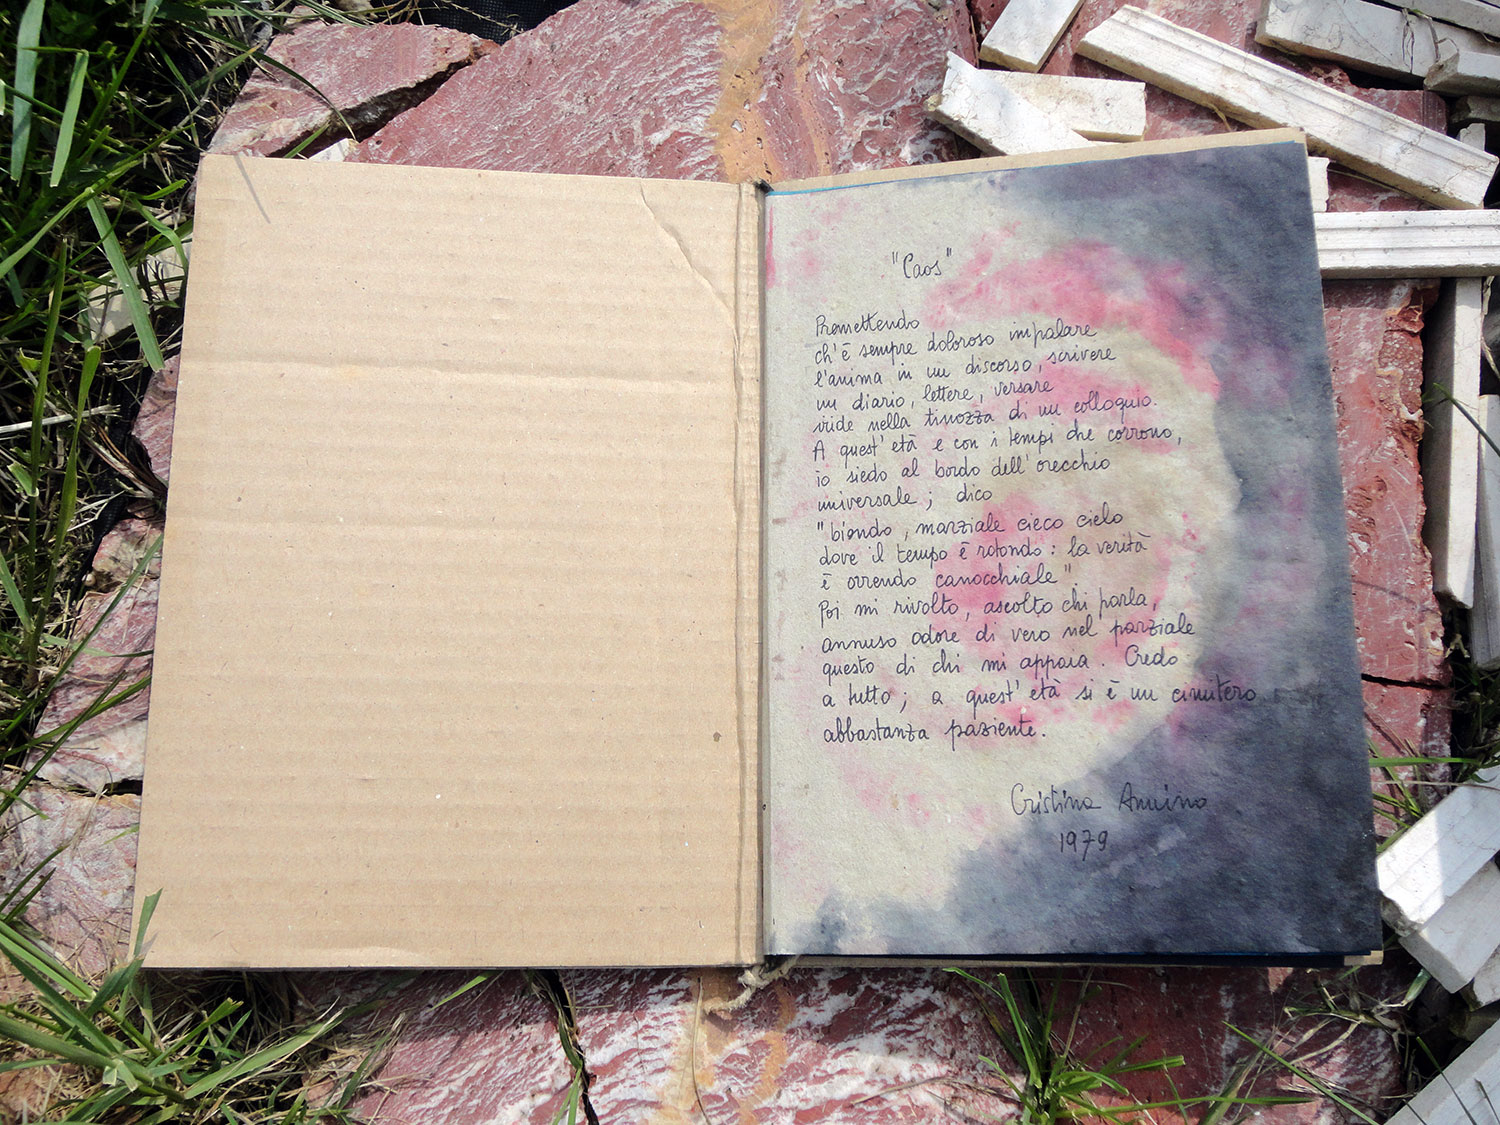 "Caos"
Premettendo
ch'è sempre doloroso impalare
l'anima in un discorso, scrivere
un diario, lettere, versare
iride nella tinozza di un colloquio.
A quest'età e con i tempi che corrono,
io siedo al bordo dell'orecchio
universale; dico
"biondo, marziale cieco cielo
dove il tempo è rotondo: la verità
è orrendo canocchiale".
Poi mi rivolto, ascolto chi parla,
annuso odore di vero nel parziale
questo di chi mi appaia. Credo
a tutto; a quest'età si è un cimitero
abbastanza paziente.
Cristina Annino
1979